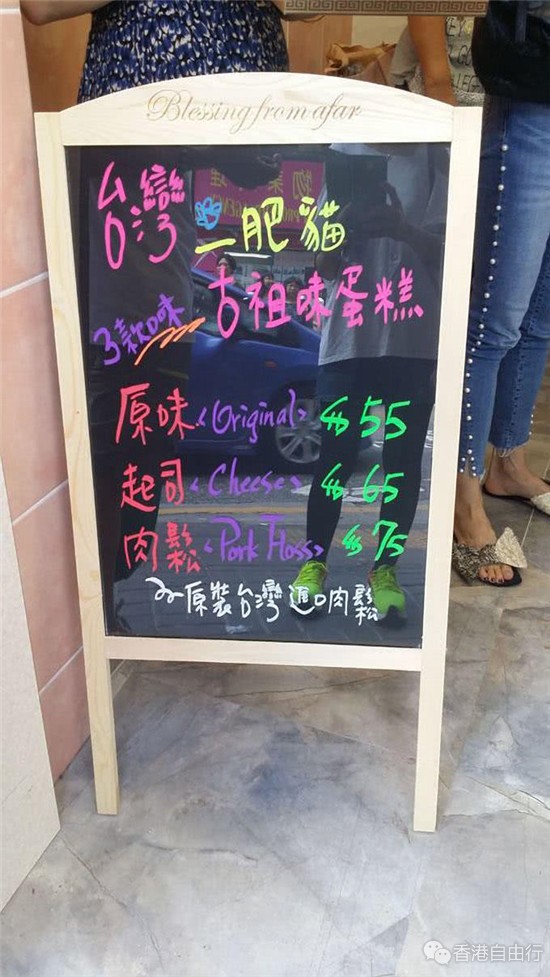 Blessing from afar
台灣 二肥貓
古祖味蛋糕
3款口味
原味 <Original> $55
起司 <Cheese> $65
肉鬆 <Pork Floss> $75
原裝台灣進口肉鬆
香港自由行